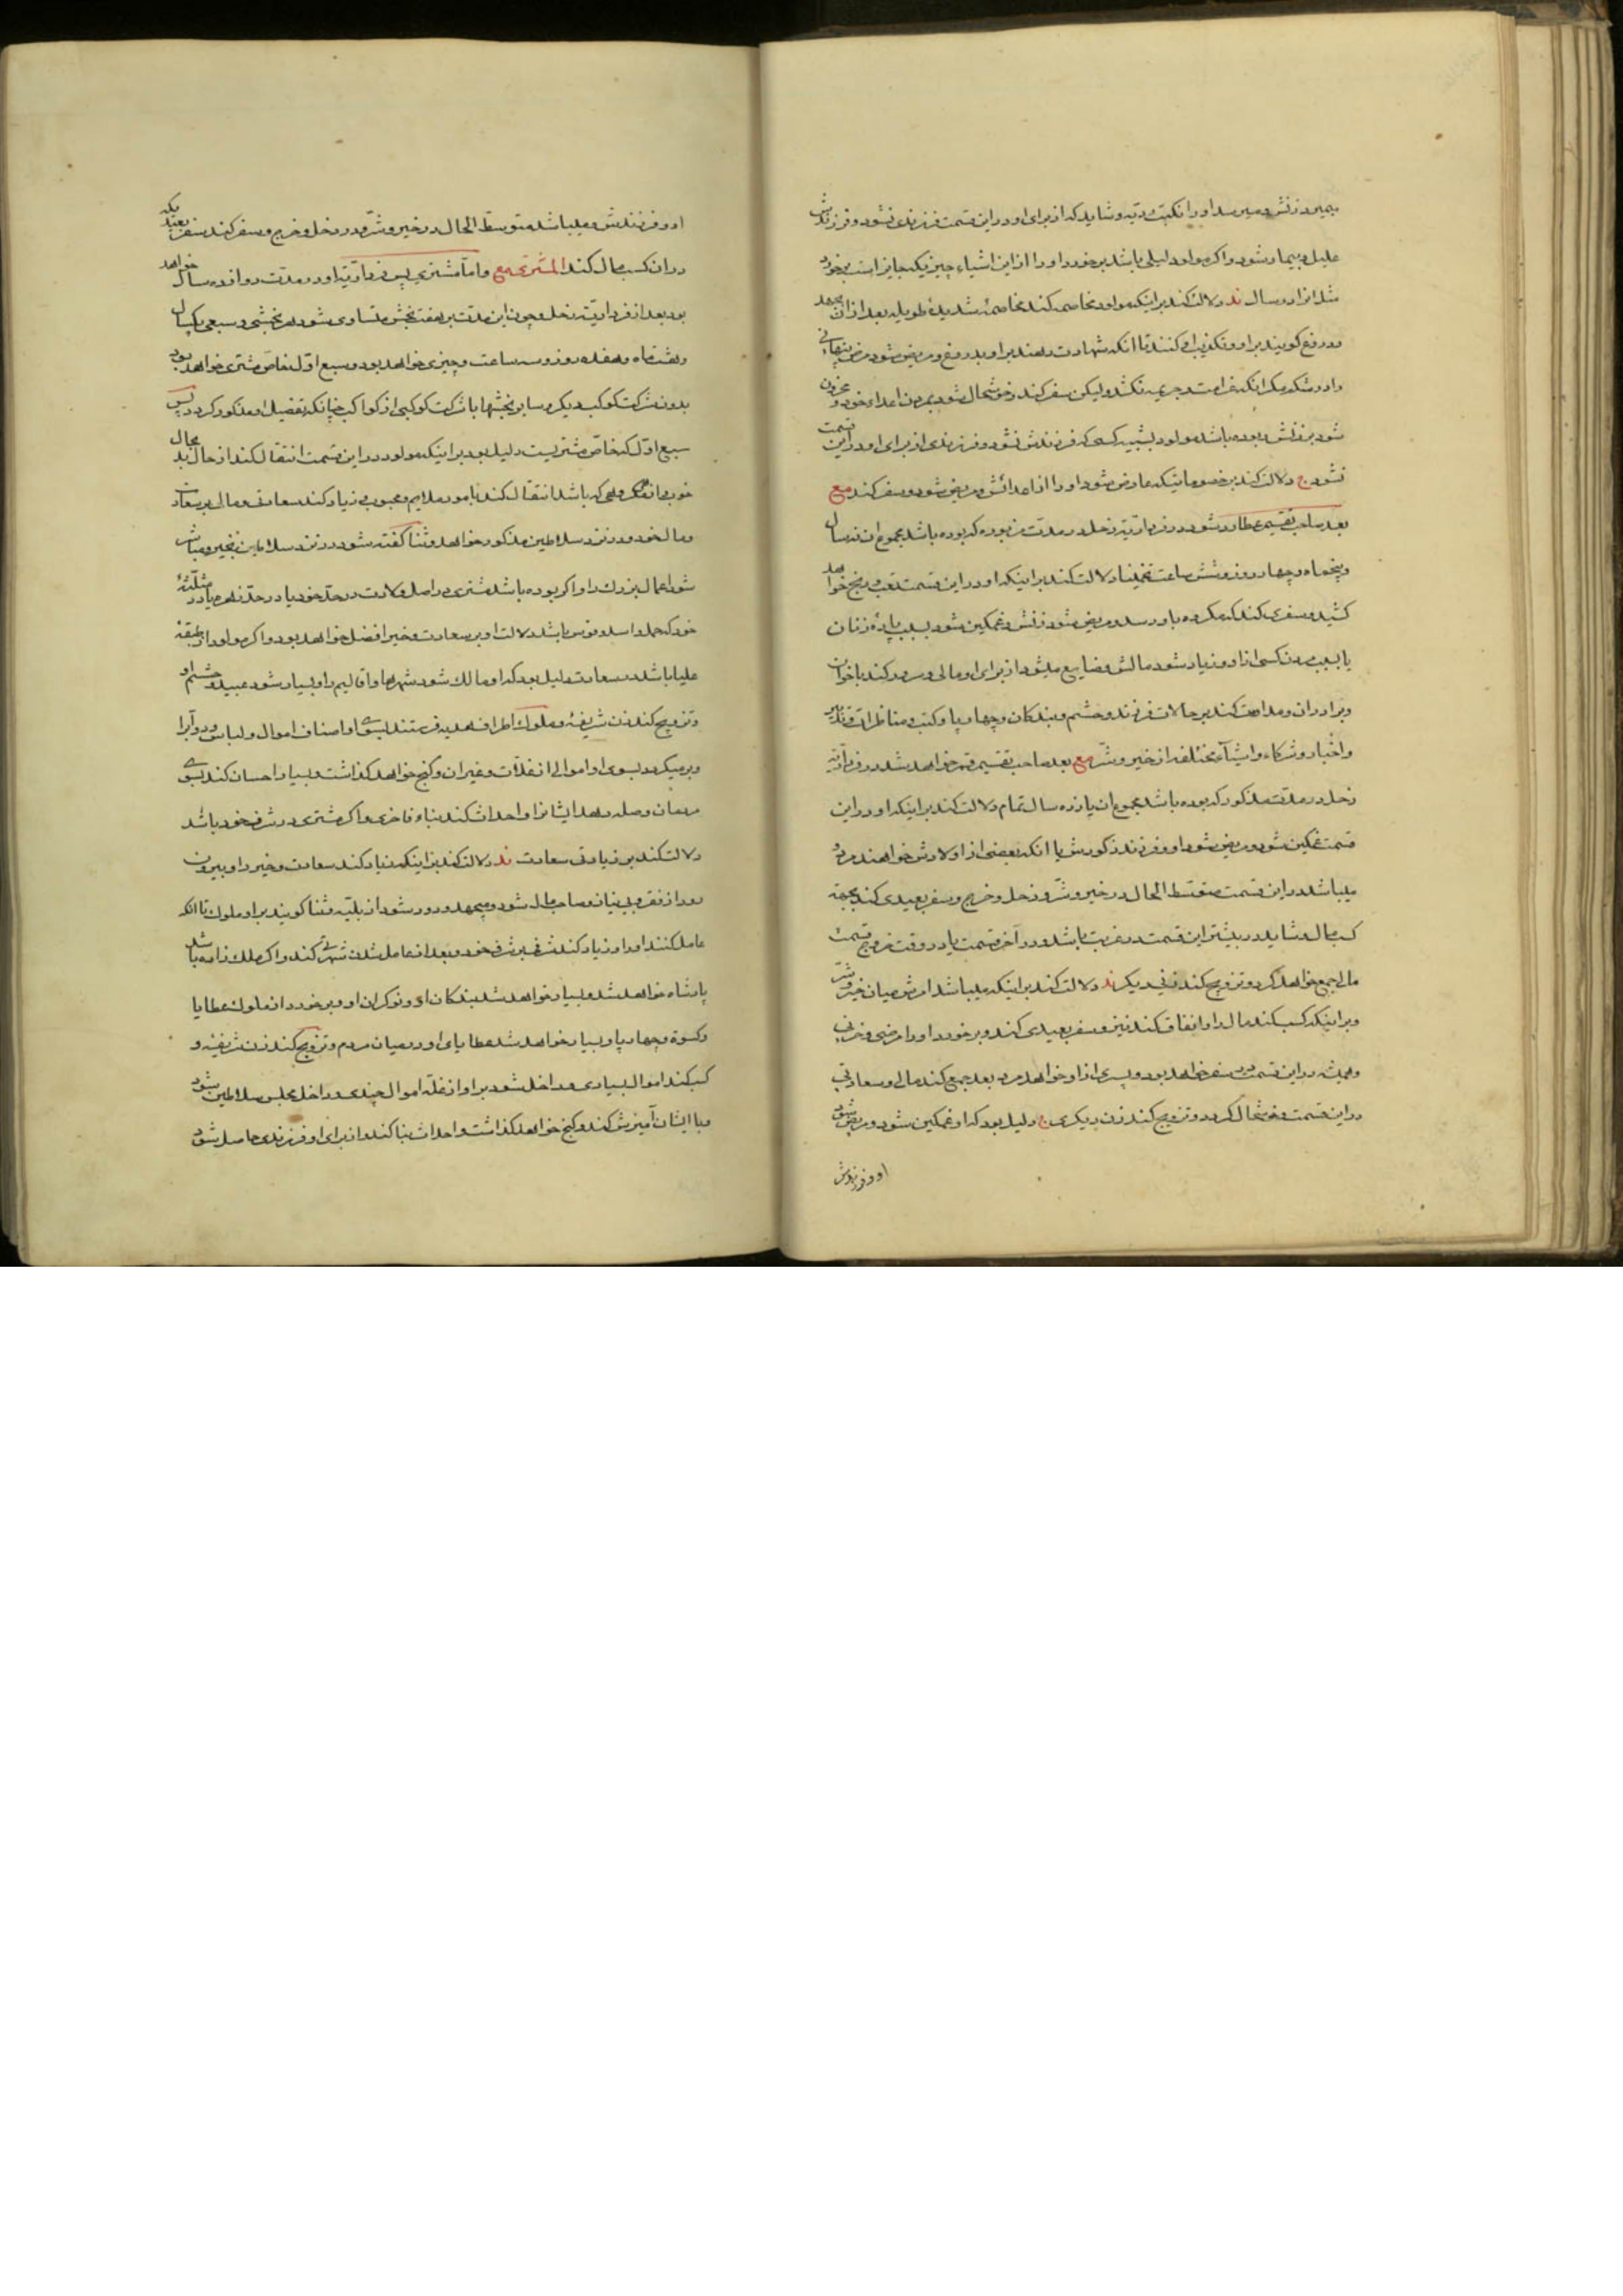 بمیرد زنش و میرسد او را نکبت و دیّه و شاید که از برای او در این قسمت فرزندی نشود و فرزندش
علیل و بیمار شود و اگر مولود لیلی باشد برخورد او را از این اشیاء چیزیکه جایز است برخورد
مثل او در سال ند دلالت کند بر اینکه مولود مخاصمه کند مخاصمهٔ شدیدهٔ طویله بعد از آن بجهد
دروغ گویند بر او و تکذیب او کنند تا آنکه شهادت دهند بر او بدروغ و مریض شود مرض پنهانی
وارد شکم مگر آنکه غرامت و جریمه نکشد ولیکن سفر کند و خوشحال شود بمردن اعداء خود و محزون
شود بر زنش بوده باشد مولود بشبیه کسی که فرزندش نشود و فرزندی از برای او در این قسمت
نشود ج دلالت کند بر خصوماتیکه عارض شود او را از اعدائش و مریض شود و سفر کند مع
بعد صاحب تقسیم عطارد شود در فرداریّه زحل در مدّت مزبوره که بوده باشد مجموع آن نه سال
و پنجماه و چهار روز و شش ساعت تخمیناً دلالت کند بر اینکه او در این قسمت تعب و رنج خواهد
کشید و سفری کند که مکروه باو رسد و مریض شود زنش و غمگین شود بسبب پارهٔ زنان
یا بسبب مردن کسی از او و زیاد شود مالش و ضایع بشود از برای او مالی و سرور کند باخوان
و برادران و مداومت کند بر حالات فرزند و حشم و بندگان و چهارپا و کتب و مناظرات و تذکیر
و اخبار و شرکاء و اشیآء مختلفه از خیر و شرّ مع بعد صاحب تقسیم قمر خواهد شد در فرداریّه
زحل در مدّت مذکور که بوده باشد مجموع آن یازده سال تمام دلالت کند بر اینکه او در این
قسمت غمگین شود و مریض شود او و فرزند ذکورش یا آنکه بعضی از اولادش خواهند مرد
میباشد در این قسمت متوسّط الحال در خیر و شرّ و دخل و خرج و سفر بعیدی کند بجهة
کسب مال و شاید در بیشتر این قسمت در غربت باشد و در آخر قسمت یا در وقت خروج قسمت
مال جمع خواهد کرد و تزویج کند زنی دیگر ند دلالت کند بر اینکه میباشد امرش میان خیر و شرّ
و بر اینکه کسب کند مال را و انفاق کند نیز و سفر بعیدی کند و برخورد او را مرضی و خزنی
و همیشه در این قسمت در سفر خواهد بود و پسری از او خواهد مرد بعد جمع کند مالی و سعادتی
در این قسمت و خوشحال گردد و تزویج کند زن دیگری ج دلیل بود که او غمگین شود و مریض شود
او و فرزندش
او و فرزندش و میباشد متوسّط الحال در خیر و شرّ و در دخل و خرج و سفر کند سفر بعید یکه
در آن کسب مال کند المشتری مع و امّا مشتری پس فرداریّه او در مدّت دوازده سال خواهد
بود بعد از فرداریّه زحل و چون این مدّت بر هفت بخش متساوی شود هر بخشی و سبعی یکسال
و هشت ماه و هفده روز و سه ساعت و چیزی خواهد بود و سبع اوّل خاصّ مشتری خواهد بود
بدون شرکت کوکب دیگر و سایر بخشها با شرکت کوکبی از کواکب چنانکه تفصیل او مذکور گردد پس
سبع اوّل که خاصّ مشتریست دلیل بود بر اینکه مولود در این قسمت انتقال کند از حال بد بحال
خوب و از فکر و همی که باشد انتقال کند بامور ملایم و محبوب و زیاد کند سعادت و مالی و رسیادت
و مال خود و در نزد سلاطین مذکور خواهد و ثنا گفته شود در نزد سلاطین بخیر و مباشر
شود اعمال بزرگ را و اگر بوده باشد مشتری در اصل ولادت در حدّ خود یا در حدّ زهره یا در مثلّثهٔ
خود که حمل و اسد و قوس باشد دلالت او بر سعادت و خیر افضل خواهد بود و اگر مولود از طبقهٔ
علیا باشد در سعادت دلیل بود که او مالک شود شهرها و اقالیم را و بسیار شود عبید و حشم او
و تزویج کند زن شریفهٔ و ملوک اطراف هدیه فرستند بسوی او اصناف اموال و لباس و دوآبّ را
و برمیگردد بسوی او اموالی از غلاّت و غیر آن و گنج خواهد گذاشت و بسیار احسان کند بسوی
مردمان وصله دهد ایشانرا و احداث کند بناء فاخری و اگر مشتری در شرف خود باشد
دلالت کند بر زیادتی سعادت ند دلالت کند بر اینکه زیاد کند سعادت و خیر را و بیرون
رود از فقر و بی نیاز و صاحب مال شود و بجهد و دور شود از بلیّه و ثنا گویند بر او ملوک تا آنکه
عامل کنند او را و زیاد کند شرفی بر شرف خود و بعد از عامل شدن شهرتی کند و اگر ملک زاده باشد
پادشاه خواهد شد و بسیار خواهد شد بندگان او و نوکران او و برخورد از ملوک عطایا
و کسوة و چهارپا و بسیار خواهد شد عطایای او در میان مردم و تزویج کند زن شریفه و
کسب کند اموال بسیاری و داخل شود بر او از غلّه اموال چندی و داخل مجلس سلاطین شود
و با ایشان آمیزش کند و گنج خواهد گذاشت و احداث بنا کند و از برای او فرزندی حاصل شود